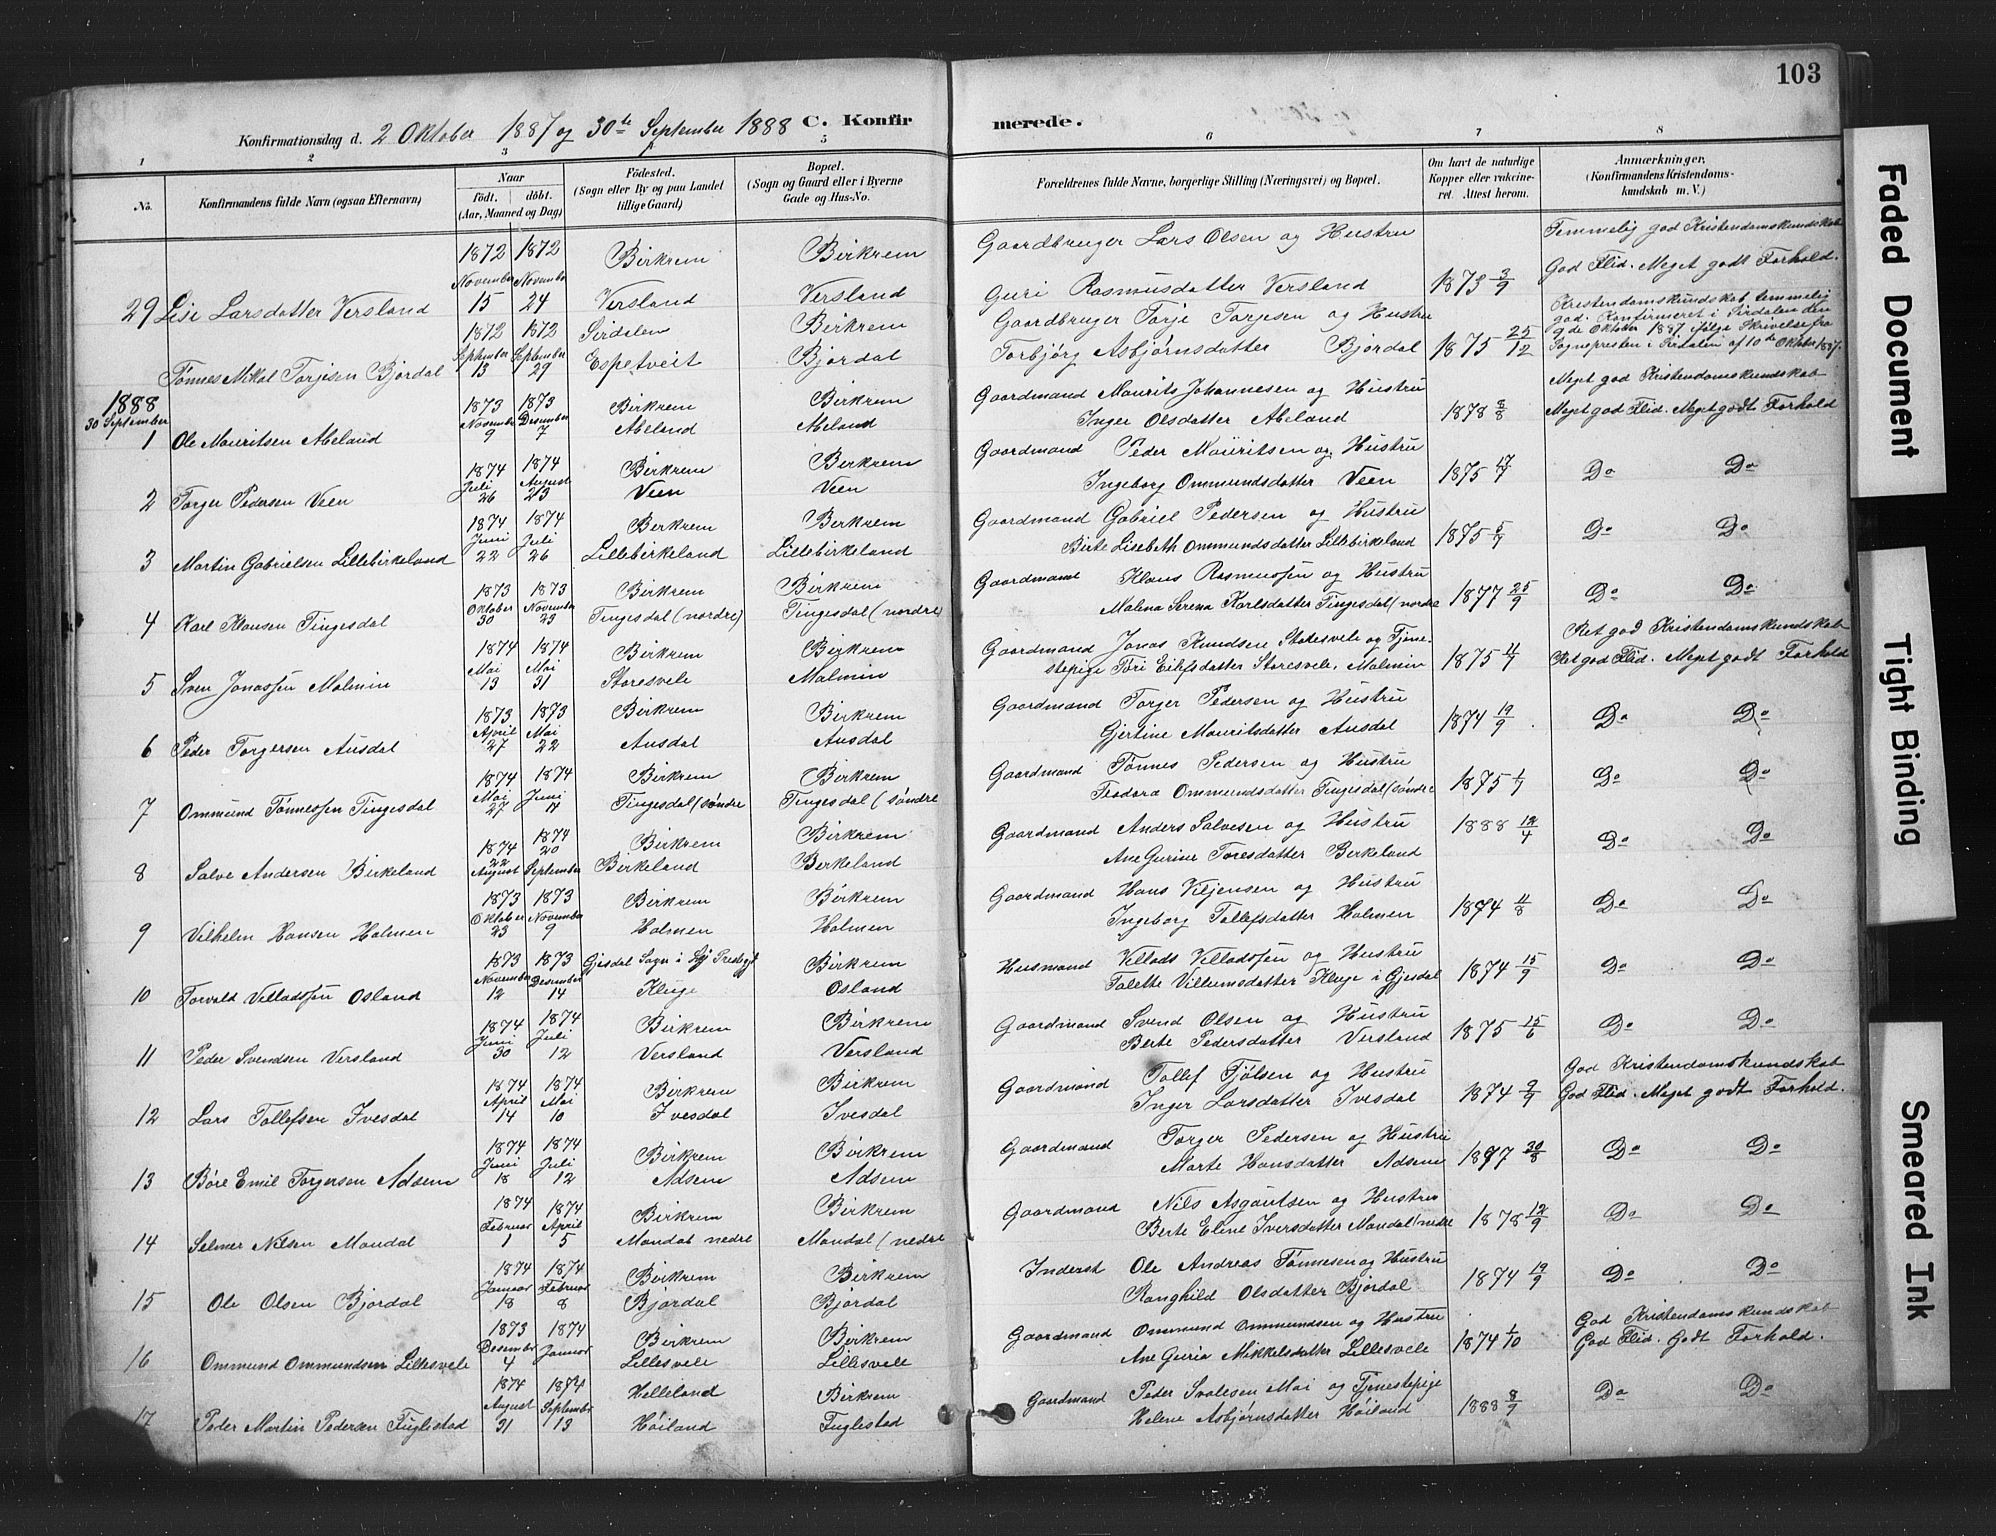 103
Konfirmationsdag d. 2 Oktober 1887 og 30te September 1888 C. Konfirmerede.
1 2 3 4 5 6 7 8
No. Konfirmandens fulde Navn (ogsaa Efternavn)
Naar födt. döbt. (Aar, Maaned og Dag)
Födested. (Sogn eller By og paa Landet tillige Gaard)
Bopæl. (Sogn og Gaard eller i Byerne Gade og Hus-No.
Forældrenes fulde Navne, borgerlige Stilling (Næringsvei) og Bopæl.
Om havt de naturlige Kopper eller vakcineret. Attest herom.
Anmærkninger, (Konfirmandens Kristendomskundskab m. V.)
29 Lisi Larsdatter Versland 1872 November 15 1872 November 24 Birkrem Versland Birkrem Versland Gaardbruger Lars Olsen og Hustru Guri Rasmusdatter Versland 1873 3/9 Temmelig god Kristendomskundskab God Flid. Meget godt Forhold.
Tønnes Mikal Torjisen Bjordal 1872 September 13 1872 September 29 Sirdalen Espetveit Birkrem Bjordal Gaardbruger Torje Torjesen og Hustru Torbjørg Asbjørnsdatter Bjørdal 1875 25/12 Kristendomskundskab temmelig god. Konfirmeret i Sirdalen den 9de Oktober 1887 ifølge Skrivelse fra Sognepresten i Sirdalen af 10de Oktober 1887.
1888
30 September
1 Ole Mauritsen Abeland 1873 November 9 1873 Desember 7 Birkrem Abeland Birkrem Abeland Gaardmand Maurits Johannesen og Hustru Inger Olsdatter Abeland 1878 8/8 Meget god Kristendomskundskab Meget god Flid. Meget godt Forhold
2 Torger Pedersen Veen 1874 Juli 26 1874 August 23 Birkrem Veen Birkrem Veen Gaardmand Peder Mauritsen og Hustru Ingeborg Ommundsdatter Veen 1875 17/7 Do Do
3 Martin Gabrielsen Lillebirkeland 1874 Juni 22 1874 Juli 26 Birkrem Lillebirkeland Birkrem Lillebirkeland Gaardmand Gabriel Pedersen og Hustru Birte Lisebeth Ommundsdatter Lillebirkeland 1875 5/7 Do Do
4 Karl Klausen Tingesdal 1873 Oktober 30 1873 November 23 Birkrem Tingesdal (nordre) Birkrem Tingesdal (nordre) Gaardmand Klaus Rasmussen og Hustru Malena Serena Karlsdatter Tingesdal (nordre 1877 25/9 Do Do
5 Sven Jonassen Malmin 1874 Mai 13 1874 Mai 31 Birkrem Storesvele Birkrem Malmin Gaardmand Jonas Knudsen Storesvele og Tjenestepige Tori Eilefsdatter Storesvele, Malmin 1875 11/7 Ret god Kristendomskundskab Ret god Flid. Meget godt Forhold
6 Peder Torgersen Ausdal 1873 April 27 1873 Mai 22 Birkrem Ausdal Birkrem Ausdal Gaardmand Torger Pedersen og Hustru Gjertine Mauritsdatter Ausdal 1874 19/9 Do Do
7 Ommund Tønnessen Tingesdal 1874 Mai 27 1874 Juni 14 Birkrem Tingesdal (søndre Birkrem Tingesdal (søndre Gaardmand Tønnes Pedersen og Hustru Teodora Ommundsdatter Tingesdal (søndre 1875 1/7 Do Do
8 Salve Andersen Birkeland 1874 22 August 1874 20 September Birkrem Birkeland Birkrem Birkeland Gaardmand Anders Salvesen og Hustru Ane Gurine Toresdatter Birkeland 1888 12/4 Do Do
9 Vilhelm Hansen Holmen 1873 Oktober 23 1873 November 9 Birkrem Holmen Birkrem Holmen Gaardmand Hans Viljensen og Hustru Ingeborg Tollefsdatter Holmen 1874 11/8 Do Do
10 Torvald Villadssen Osland 1873 November 12 1873 Desember 14 Gjesdal Sogn i Prestegjt Kluge Birkrem Osland Husmand Villads Villadssen og Hustru Talette Villumsdatter Kluge i Gjesdal 1874 15/9 Do Do
11 Peder Svendsen Versland 1874 Juni 30 1874 Juli 12 Birkrem Versland Birkrem Versland Gaardmand Svend Olsen og Hustru Berte Pedersdatter Versland 1875 15/6 Do Do
12 Lars Tollefsen Ivesdal 1874 April 14 1874 Mai 10 Birkrem Ivesdal Birkrem Ivesdal Gaardmand Tollef Tjølsen og Hustru Inger Larsdatter Ivesdal 1874 9/9 God Kristendomskundskab God Flid. Meget godt Forhold.
13 Børe Emil Torgersen Adsem 1874 Juni 18 1874 Juli 12 Birkrem Adsem Birkrem Adsem Gaardmand Torger Pedersen og Hustru Marte Hansdatter Adsem 1877 30/8 Do Do
14 Selmer Nilsen Mandal 1874 Februar 1 1874 April 5 Birkrem Mandal nedre Birkrem Mandal (nedre Gaardmand Nils Asgautsen og Hustru Berte Eline Iversdatter Mandal (nedre 1878 12/9 Do Do
15 Ole Olsen Bjordal 1874 Januar 18 1874 Februar 8 Birkrem Bjørdal Birkrem Bjørdal Inderst Ole Andreas Tønnesen og Hustru Ranghild Olsdatter Bjørdal 1874 19/9 Do Do
16 Ommund Ommundsen Lillesvele 1873 Desember 4 1874 Januar Birkrem Lillesvele Birkrem Lillesvele Gaardmand Ommund Ommundsen og Hustru Ane Guria Mikkelsdatter Lillesvele 1874 1/10 God Kristendomskundskab God Flid. Godt Forhold.
17 Peder Martin Pedersen Fuglestad 1874 August 31 1874 September 13 Helleland Høiland Birkrem Fuglestad Gaardmand Peder Svalesen Moi og Tjenestepige Helene Asbjørnsdatter Høiland 1888 8/9 Do Do
Faded Document
Tight Binding
Smeared Ink